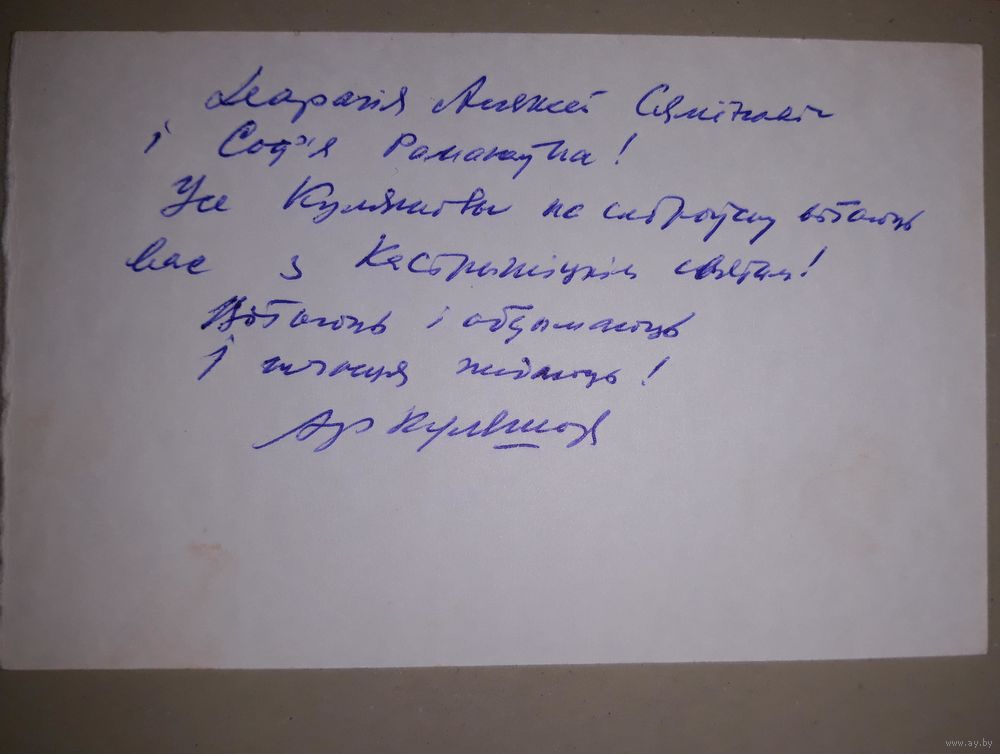 Дарагія Аляксей Сямёнавіч
і Соф'я Раманаўна!
Усе Куляшовы па сяброўску вітаюць
вас з Кастрычніцкім святам!
Вітаюць і абдымаюць
І шчасця жадаюць!
Ар Куляшоў
www.ay.by